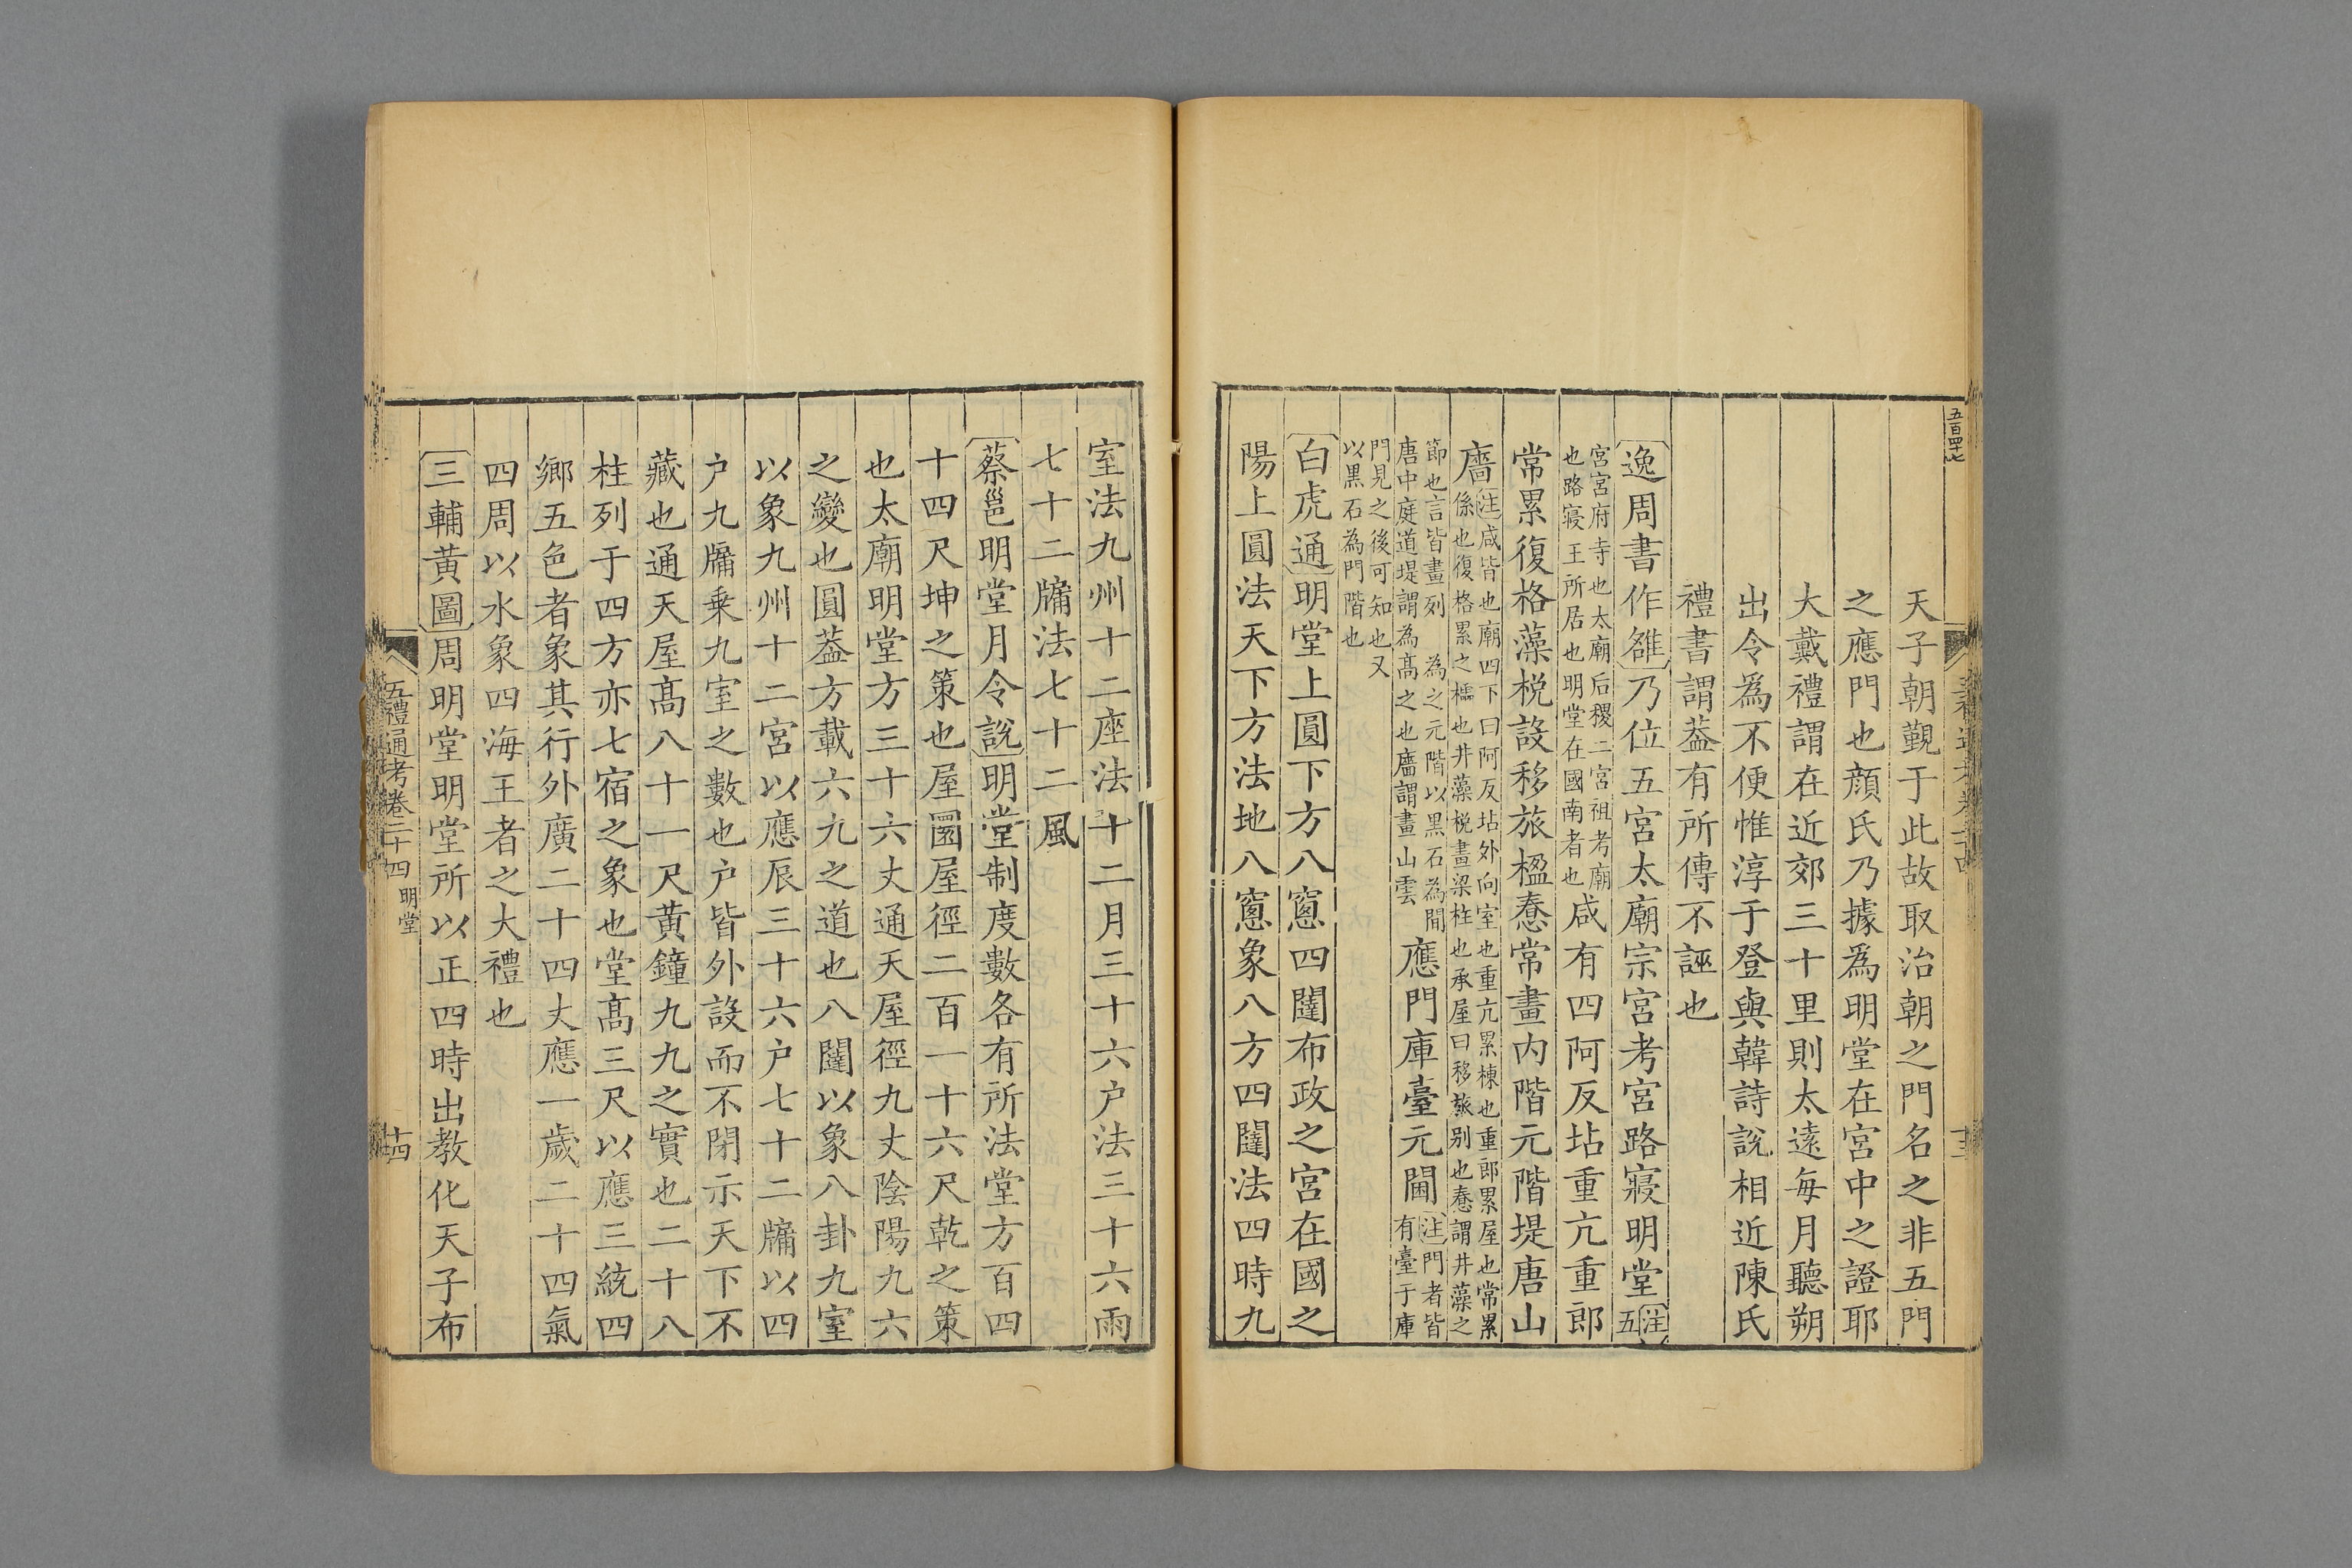 五百四十七
天子朝覲于此故取治朝之門名之非五門
之應門也顔氏乃據爲明堂在宮中之證耶
大戴禮謂在近郊三十里則太遠每月聽朔
出令爲不便惟淳于登與韓詩說相近陳氏
禮書謂葢有所傳不誣也
逸周書作雒乃位五宮太廟宗宮考宮路寢明堂注五
宮宮府寺也太廟后稷二宮祖考廟
也路寢王所居也明堂在國南者也咸有四阿反坫重亢重郎
常累復格藻梲設移旅楹惷常畫内階元階堤唐山
廧注咸皆也廟四下曰阿反坫外向室也重亢累棟也重郎累屋也常累
係也復格累之櫺也井藻梲畫梁柱也承屋曰移旅别也惷謂井藻之
節也言皆畫列 為之元階以黒石為閒
唐中庭道堤謂為髙之也廧謂畫山雲應門庫臺元閫注門者皆
有臺于庫
門見之後可知也又
以黒石為門階也
白虎通明堂上圓下方八窻四闥布政之宮在國之
陽上圓法天下方法地八窻象八方四闥法四時九
室法九州十二座法十二月三十六户法三十六雨
七十二牖法七十二風
蔡邕明堂月令說明堂制度數各有所法堂方百四
十四尺坤之策也屋圜屋徑二百一十六尺乾之策
也太廟明堂方三十六丈通天屋徑九丈陰陽九六
之變也圓葢方載六九之道也八闥以象八卦九室
以象九州十二宮以應辰三十六户七十二牖以四
户九牖乗九室之數也户皆外設而不閉示天下不
藏也通天屋髙八十一尺黄鐘九九之實也二十八
柱列于四方亦七宿之象也堂髙三尺以應三統四
鄉五色者象其行外廣二十四丈應一歲二十四氣
四周以水象四海王者之大禮也
三輔黄圖周明堂明堂所以正四時出教化天子布
五禮通考卷二十四 明堂
十四